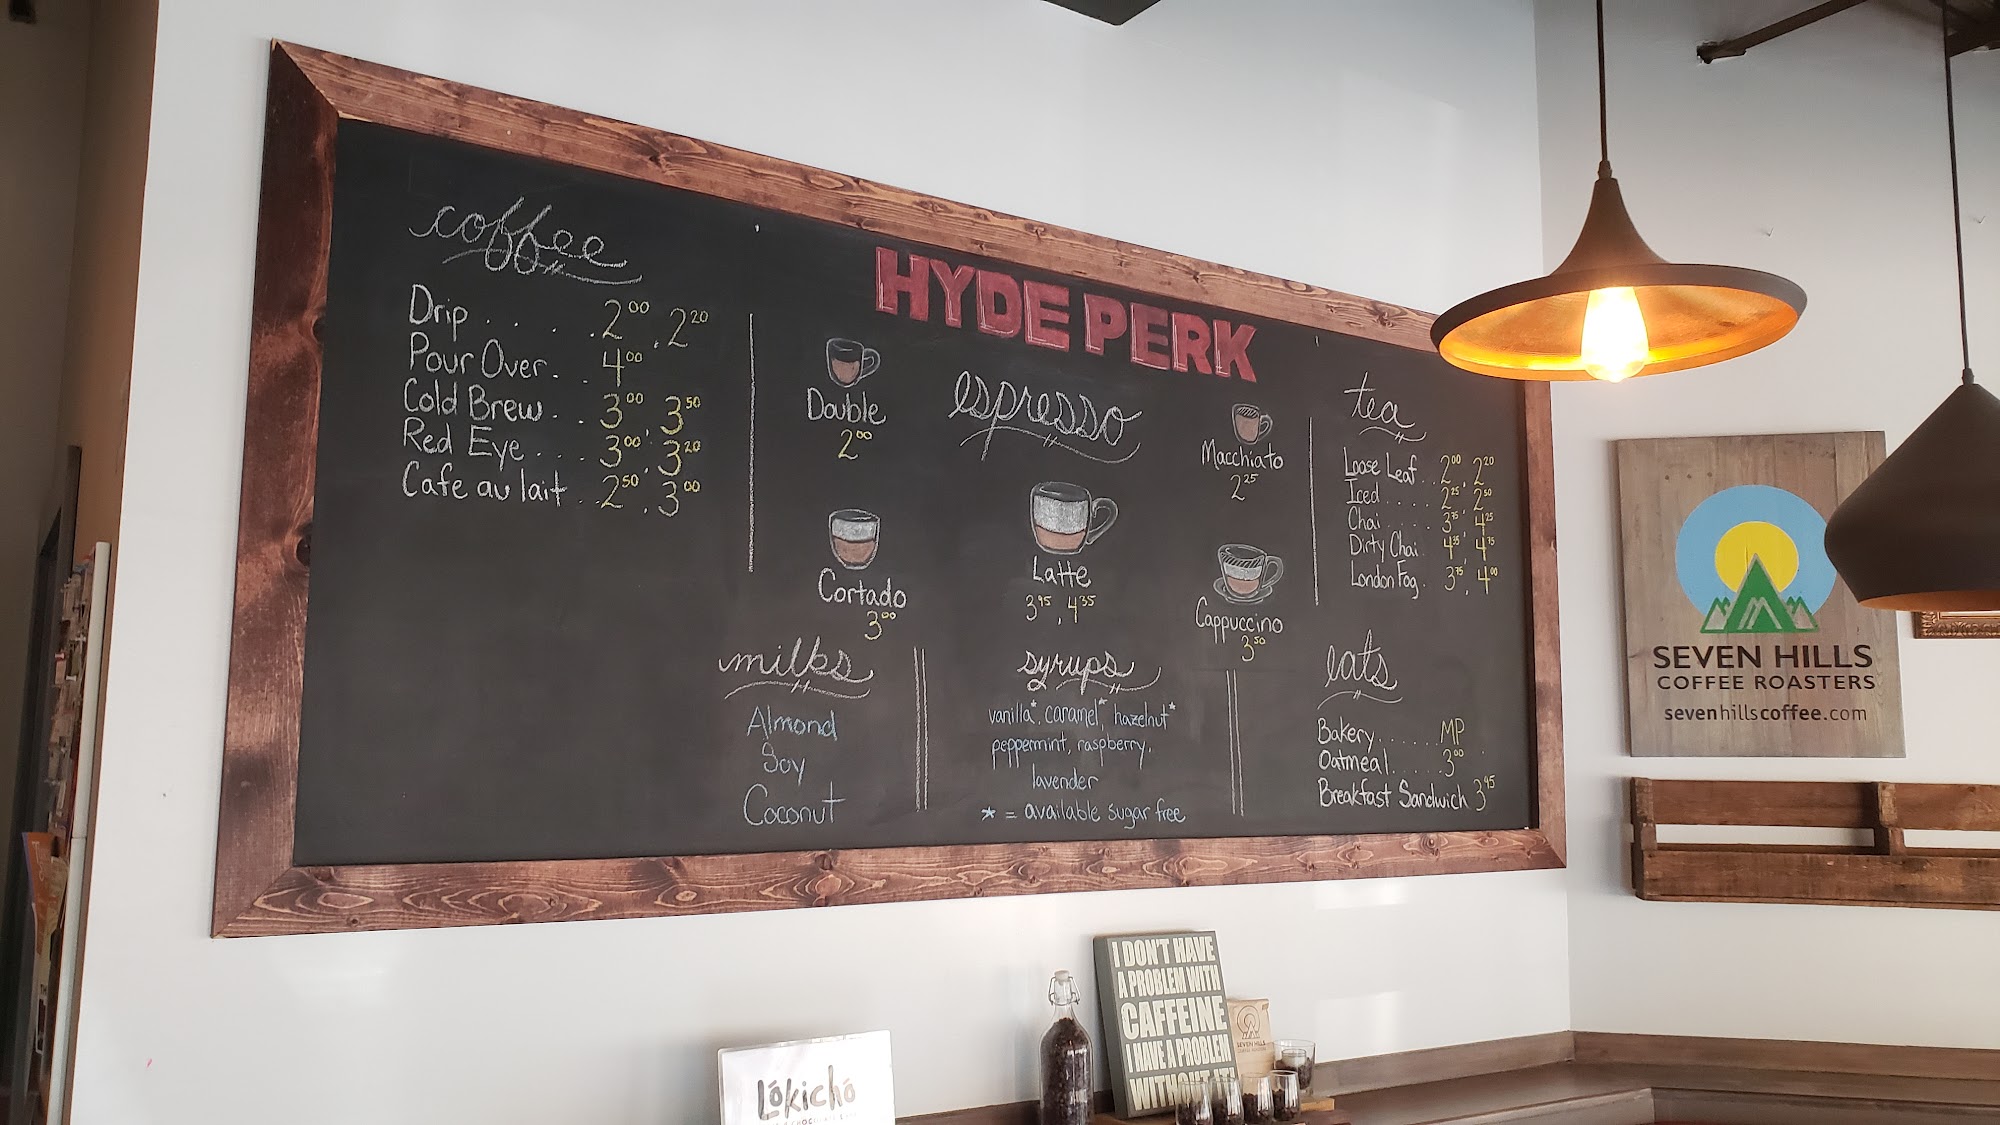 coffee
Drip . . . . . 2.00, 2.20
Pour Over . . . 4.00
Cold Brew . . . 3.00, 3.50
Red Eye . . . . 3.00, 3.20
Cafe au lait . . 2.50, 3.00
HYDE PERK
espresso
Double
2.00
Macchiato
2.25
Cortado
3.00
Latte
3.95, 4.35
Cappuccino
3.50
tea
Loose Leaf . . 2.00, 2.20
Iced . . . . . 2.25, 2.50
Chai . . . . . 3.75, 4.25
Dirty Chai . 4.35, 4.75
London Fog . 3.75, 4.00
milks
Almond
Soy
Coconut
syrups
vanilla*, caramel*, hazelnut*
peppermint, raspberry,
lavender
* = available sugar free
eats
Bakery . . . . . . MP
Oatmeal . . . . . . 3.00
Breakfast Sandwich 3.95
SEVEN HILLS
COFFEE ROASTERS
sevenhillscoffee.com
I DON'T HAVE
A PROBLEM WITH
CAFFEINE
I HAVE A PROBLEM
WITHOUT IT!
SEVEN HILLS
COFFEE ROASTERS
Lókichó